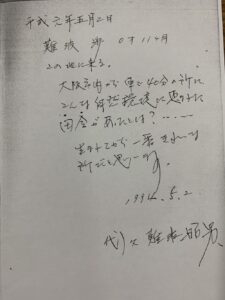 平成元年五月二日
難波 渉 0才11ヶ月
この地に来る。
大阪市内から車で40分の所に
こんな自然環境に恵まれた
田舎があったとは?……
生まれてから一番きれいな
所だと思います。
1990.5.2
代) 父 難波 昭男